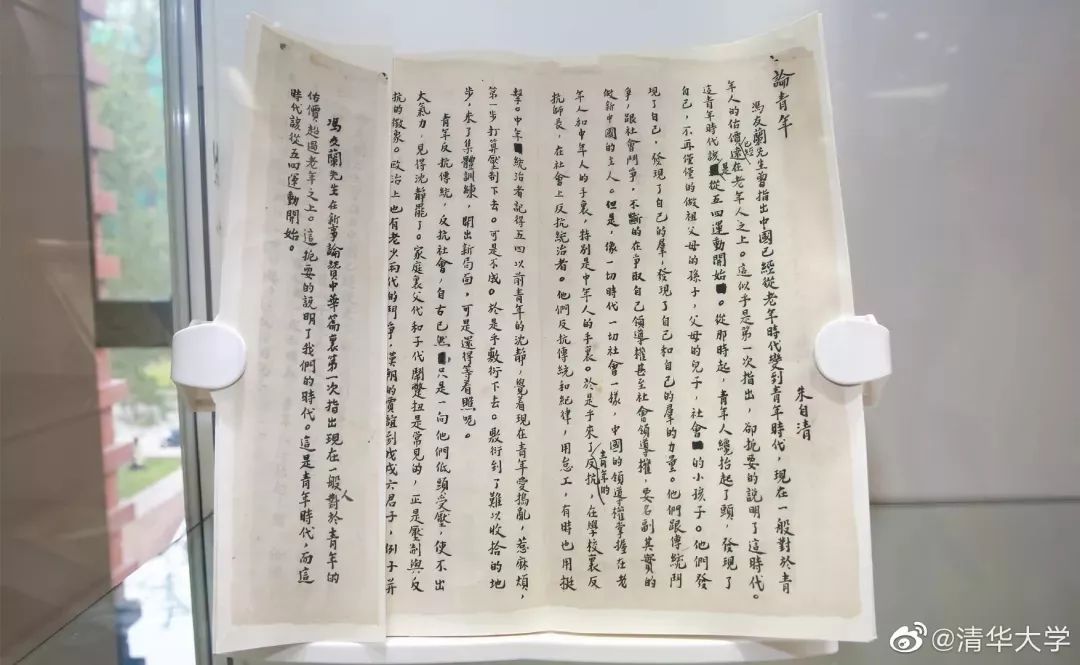 論青年
朱自清
馮友蘭先生曾指出中國已經從老年時代變到青年時代,現在一般對於青
年人的估價已經遠在老年人之上。這似乎是第一次指出,卻扼要的說明了這時代。
這青年時代該是從五四運動開始。從那時起,青年人纔抬起了頭,發現了
自己,不再僅僅的做祖父母的孫子,父母的兒子,社會的小孩子。他們發
現了自己,發現了自己的羣,發現了自己和自己的羣的力量。他們跟傳統鬥
爭,跟社會鬥爭,不斷的在爭取自己領導權甚至社會領導權,要名副其實的
做新中國的主人。但是,像一切時代一切社會一樣,中國的領導權掌握在老
年人和中年人的手裏,特別是中年人的手裏。於是乎來了青年的反抗,在學校裏反
抗師長,在社會上反抗統治者。他們反抗傳統和紀律,用怠工,有時也用挺
擊。中年統治者記得五四以前青年的沈靜,覺着現在青年愛搗亂,惹麻煩,
第一步打算壓制下去。可是不成。於是乎敷衍下去。敷衍到了難以收拾的地
步,來了集體訓練,開出新局面,可是還得等着瞧呢。
青年反抗傳統,反抗社會,自古已然,只是一向他們低頭受壓,使不出
大氣力,見得沈靜罷了。家庭裏父代和子代鬧彆扭是常見的,正是壓制與反
抗的徵象。政治上也有老少兩代的鬥爭,漢朝的賈誼到戊戌六君子,例子並
馮友蘭先生在新事論讚中華篇裏第一次指出現在一般人對於青年的
估價超過老年之上。這扼要的說明了我們的時代。這是青年時代,而這
時代該從五四運動開始。
@清华大学